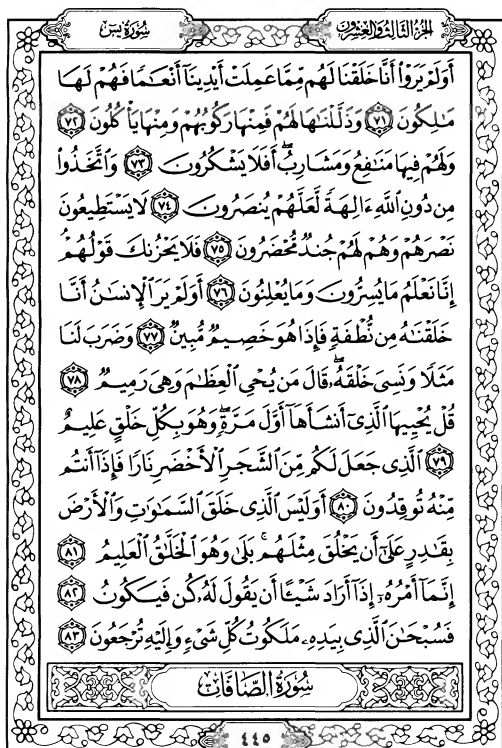 الجزء الثالث والعشرون
سورة يس
أَوَلَمْ يَرَوْا۟ أَنَّا خَلَقْنَا لَهُم مِّمَّا عَمِلَتْ أَيْدِينَآ أَنْعَٰمًا فَهُمْ لَهَا
مَٰلِكُونَ ٧١ وَذَلَّلْنَٰهَا لَهُمْ فَمِنْهَا رَكُوبُهُمْ وَمِنْهَا يَأْكُلُونَ ٧٢
وَلَهُمْ فِيهَا مَنَٰفِعُ وَمَشَارِبُ ۖ أَفَلَا يَشْكُرُونَ ٧٣ وَٱتَّخَذُوا۟
مِن دُونِ ٱللَّهِ ءَالِهَةً لَّعَلَّهُمْ يُنصَرُونَ ٧٤ لَا يَسْتَطِيعُونَ
نَصْرَهُمْ وَهُمْ لَهُمْ جُندٌ مُّحْضَرُونَ ٧٥ فَلَا يَحْزُنكَ قَوْلُهُمْ ۘ
إِنَّا نَعْلَمُ مَا يُسِرُّونَ وَمَا يُعْلِنُونَ ٧٦ أَوَلَمْ يَرَ ٱلْإِنسَٰنُ أَنَّا
خَلَقْنَٰهُ مِن نُّطْفَةٍ فَإِذَا هُوَ خَصِيمٌ مُّبِينٌ ٧٧ وَضَرَبَ لَنَا
مَثَلًا وَنَسِىَ خَلْقَهُۥ ۖ قَالَ مَن يُحْىِ ٱلْعِظَٰمَ وَهِىَ رَمِيمٌ ٧٨
قُلْ يُحْيِيهَا ٱلَّذِىٓ أَنشَأَهَآ أَوَّلَ مَرَّةٍ ۖ وَهُوَ بِكُلِّ خَلْقٍ عَلِيمٌ
٧٩ ٱلَّذِى جَعَلَ لَكُم مِّنَ ٱلشَّجَرِ ٱلْأَخْضَرِ نَارًا فَإِذَآ أَنتُم
مِّنْهُ تُوقِدُونَ ٨٠ أَوَلَيْسَ ٱلَّذِى خَلَقَ ٱلسَّمَٰوَٰتِ وَٱلْأَرْضَ
بِقَٰدِرٍ عَلَىٰٓ أَن يَخْلُقَ مِثْلَهُم ۚ بَلَىٰ وَهُوَ ٱلْخَلَّٰقُ ٱلْعَلِيمُ ٨١
إِنَّمَآ أَمْرُهُۥٓ إِذَآ أَرَادَ شَيْـًٔا أَن يَقُولَ لَهُۥ كُن فَيَكُونُ ٨٢
فَسُبْحَٰنَ ٱلَّذِى بِيَدِهِۦ مَلَكُوتُ كُلِّ شَىْءٍ وَإِلَيْهِ تُرْجَعُونَ ٨٣
سورة الصافات
٤٤٥